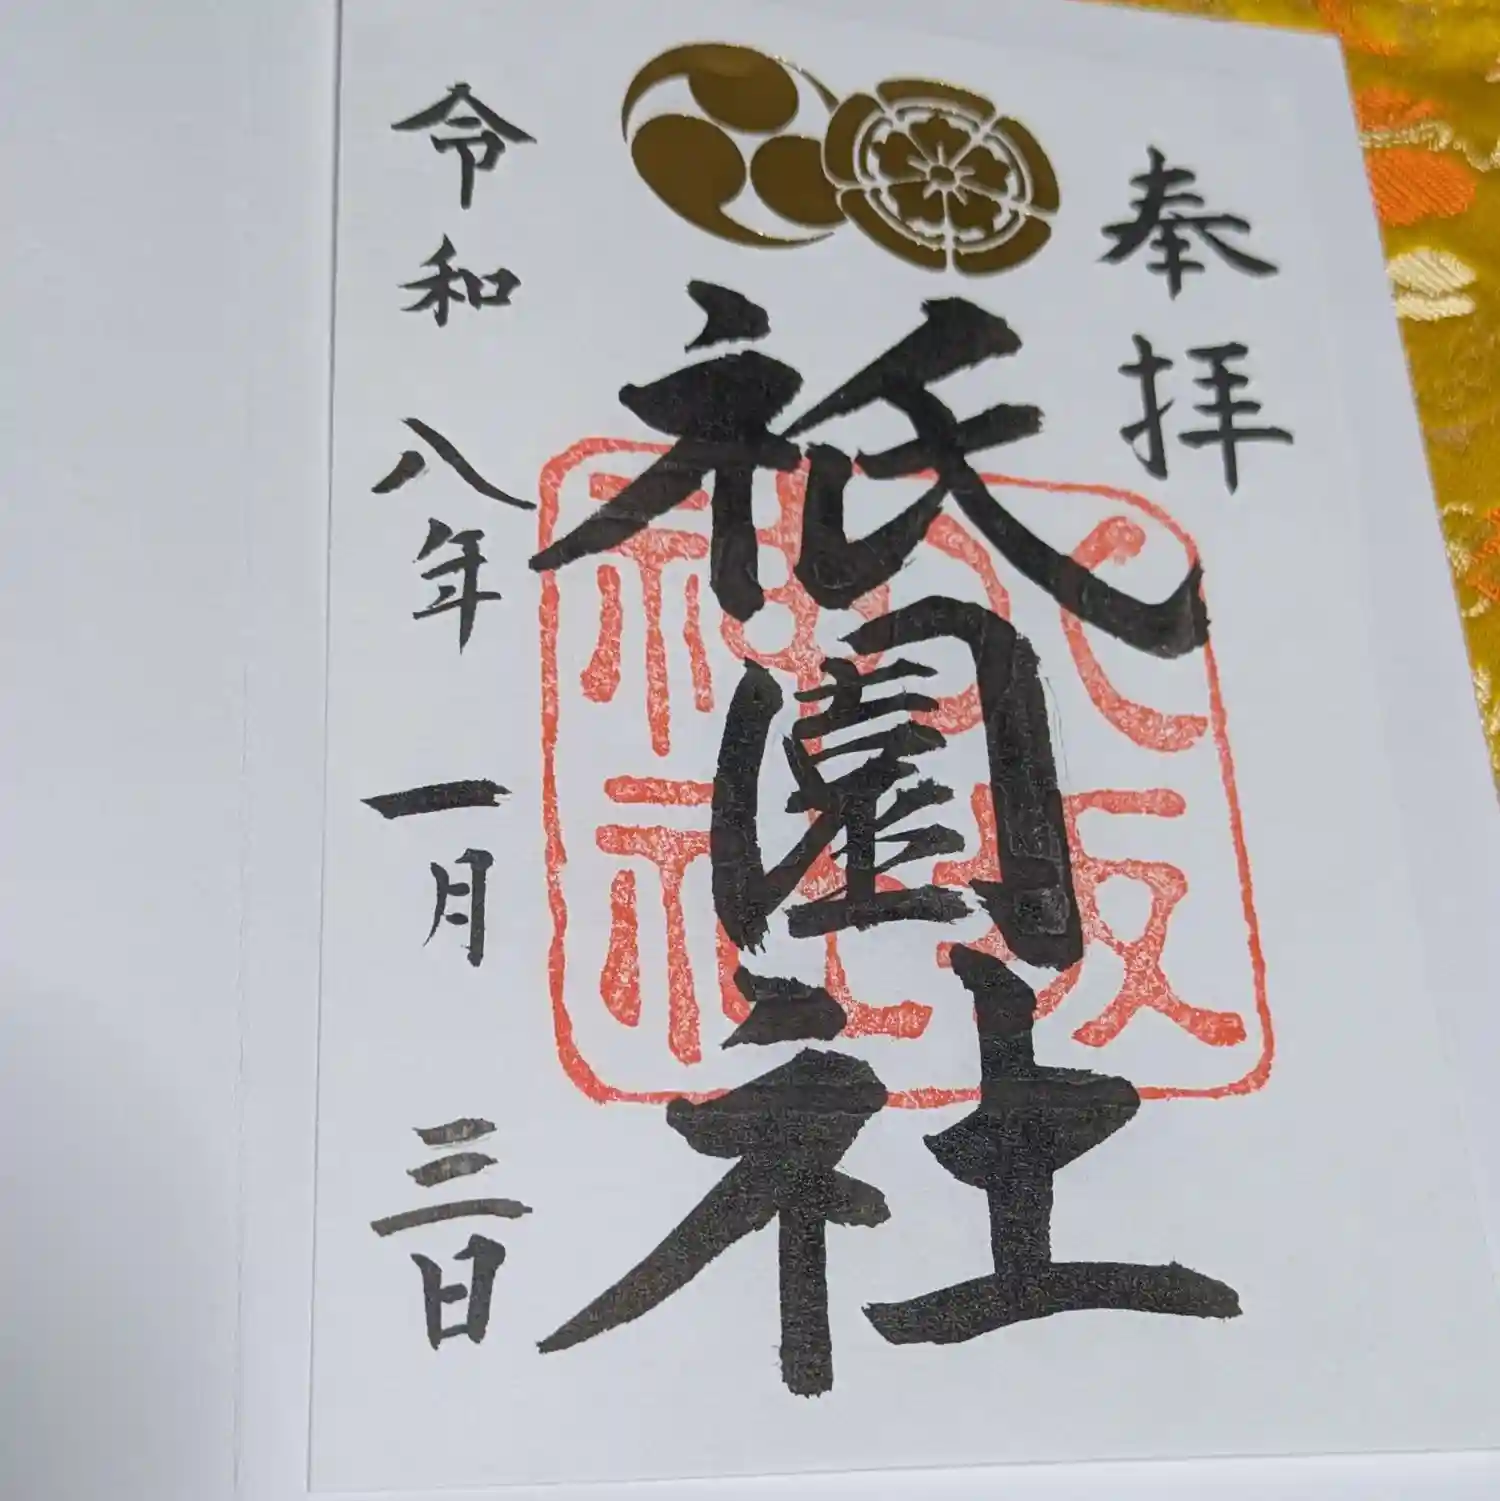 奉拝
祇園社
八坂神社
令和八年一月三日